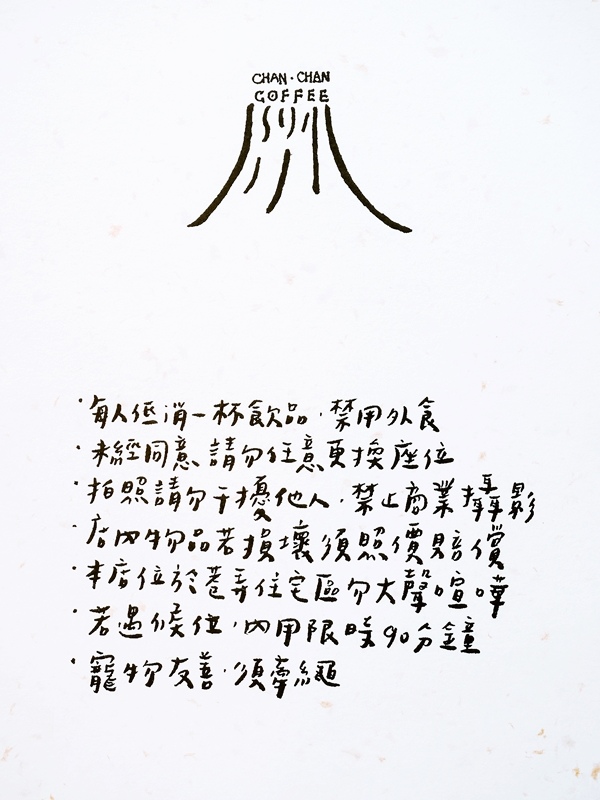 CHAN·CHAN
COFFEE
·每人低消一杯飲品·禁用外食
·未經同意請勿任意更換座位
·拍照請勿干擾他人·禁止商業攝影
·店內物品若損壞須照價賠償
·本店位於巷弄住宅區勿大聲喧嘩
·若遇候位·內用限時90分鐘
·寵物友善·須牽繩